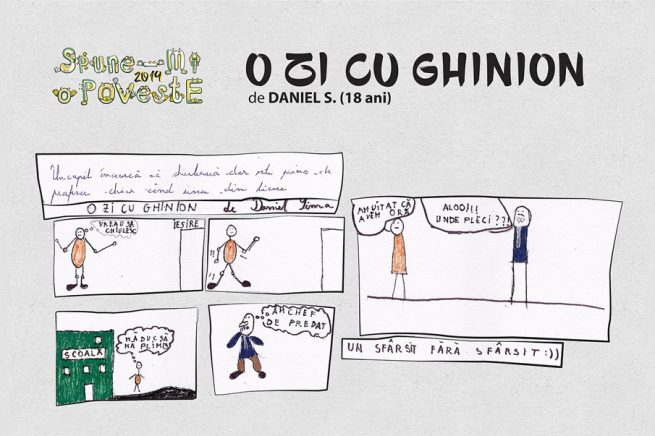 Spune-Mi
2019
o PoveStE
O ZI CU GHINION
de DANIEL S. (18 ani)
Un copil încearcă să chiulească dar este prins de
profesor chiar când iesea din liceu
O ZI CU GHINION de Daniel
VREAU SĂ
CHIULESC
IEȘIRE
AM UITAT CĂ
AVEM ORĂ
ALOO!!!
UNDE PLECI??!
ȘCOALĂ
MĂ DUC SĂ
MĂ PLIMB
AM CHEF
DE PREDAT
UN SFÂRȘIT FĂRĂ SFÂRȘIT:))